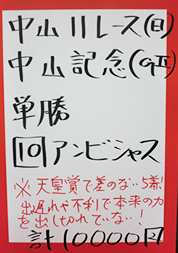 中山11レース(日)
中山記念(GⅡ)
単勝
10アンビシャス
※天皇賞で差のない5着!
出遅れや不利で本来の力
を出し切れていない!
計10000円